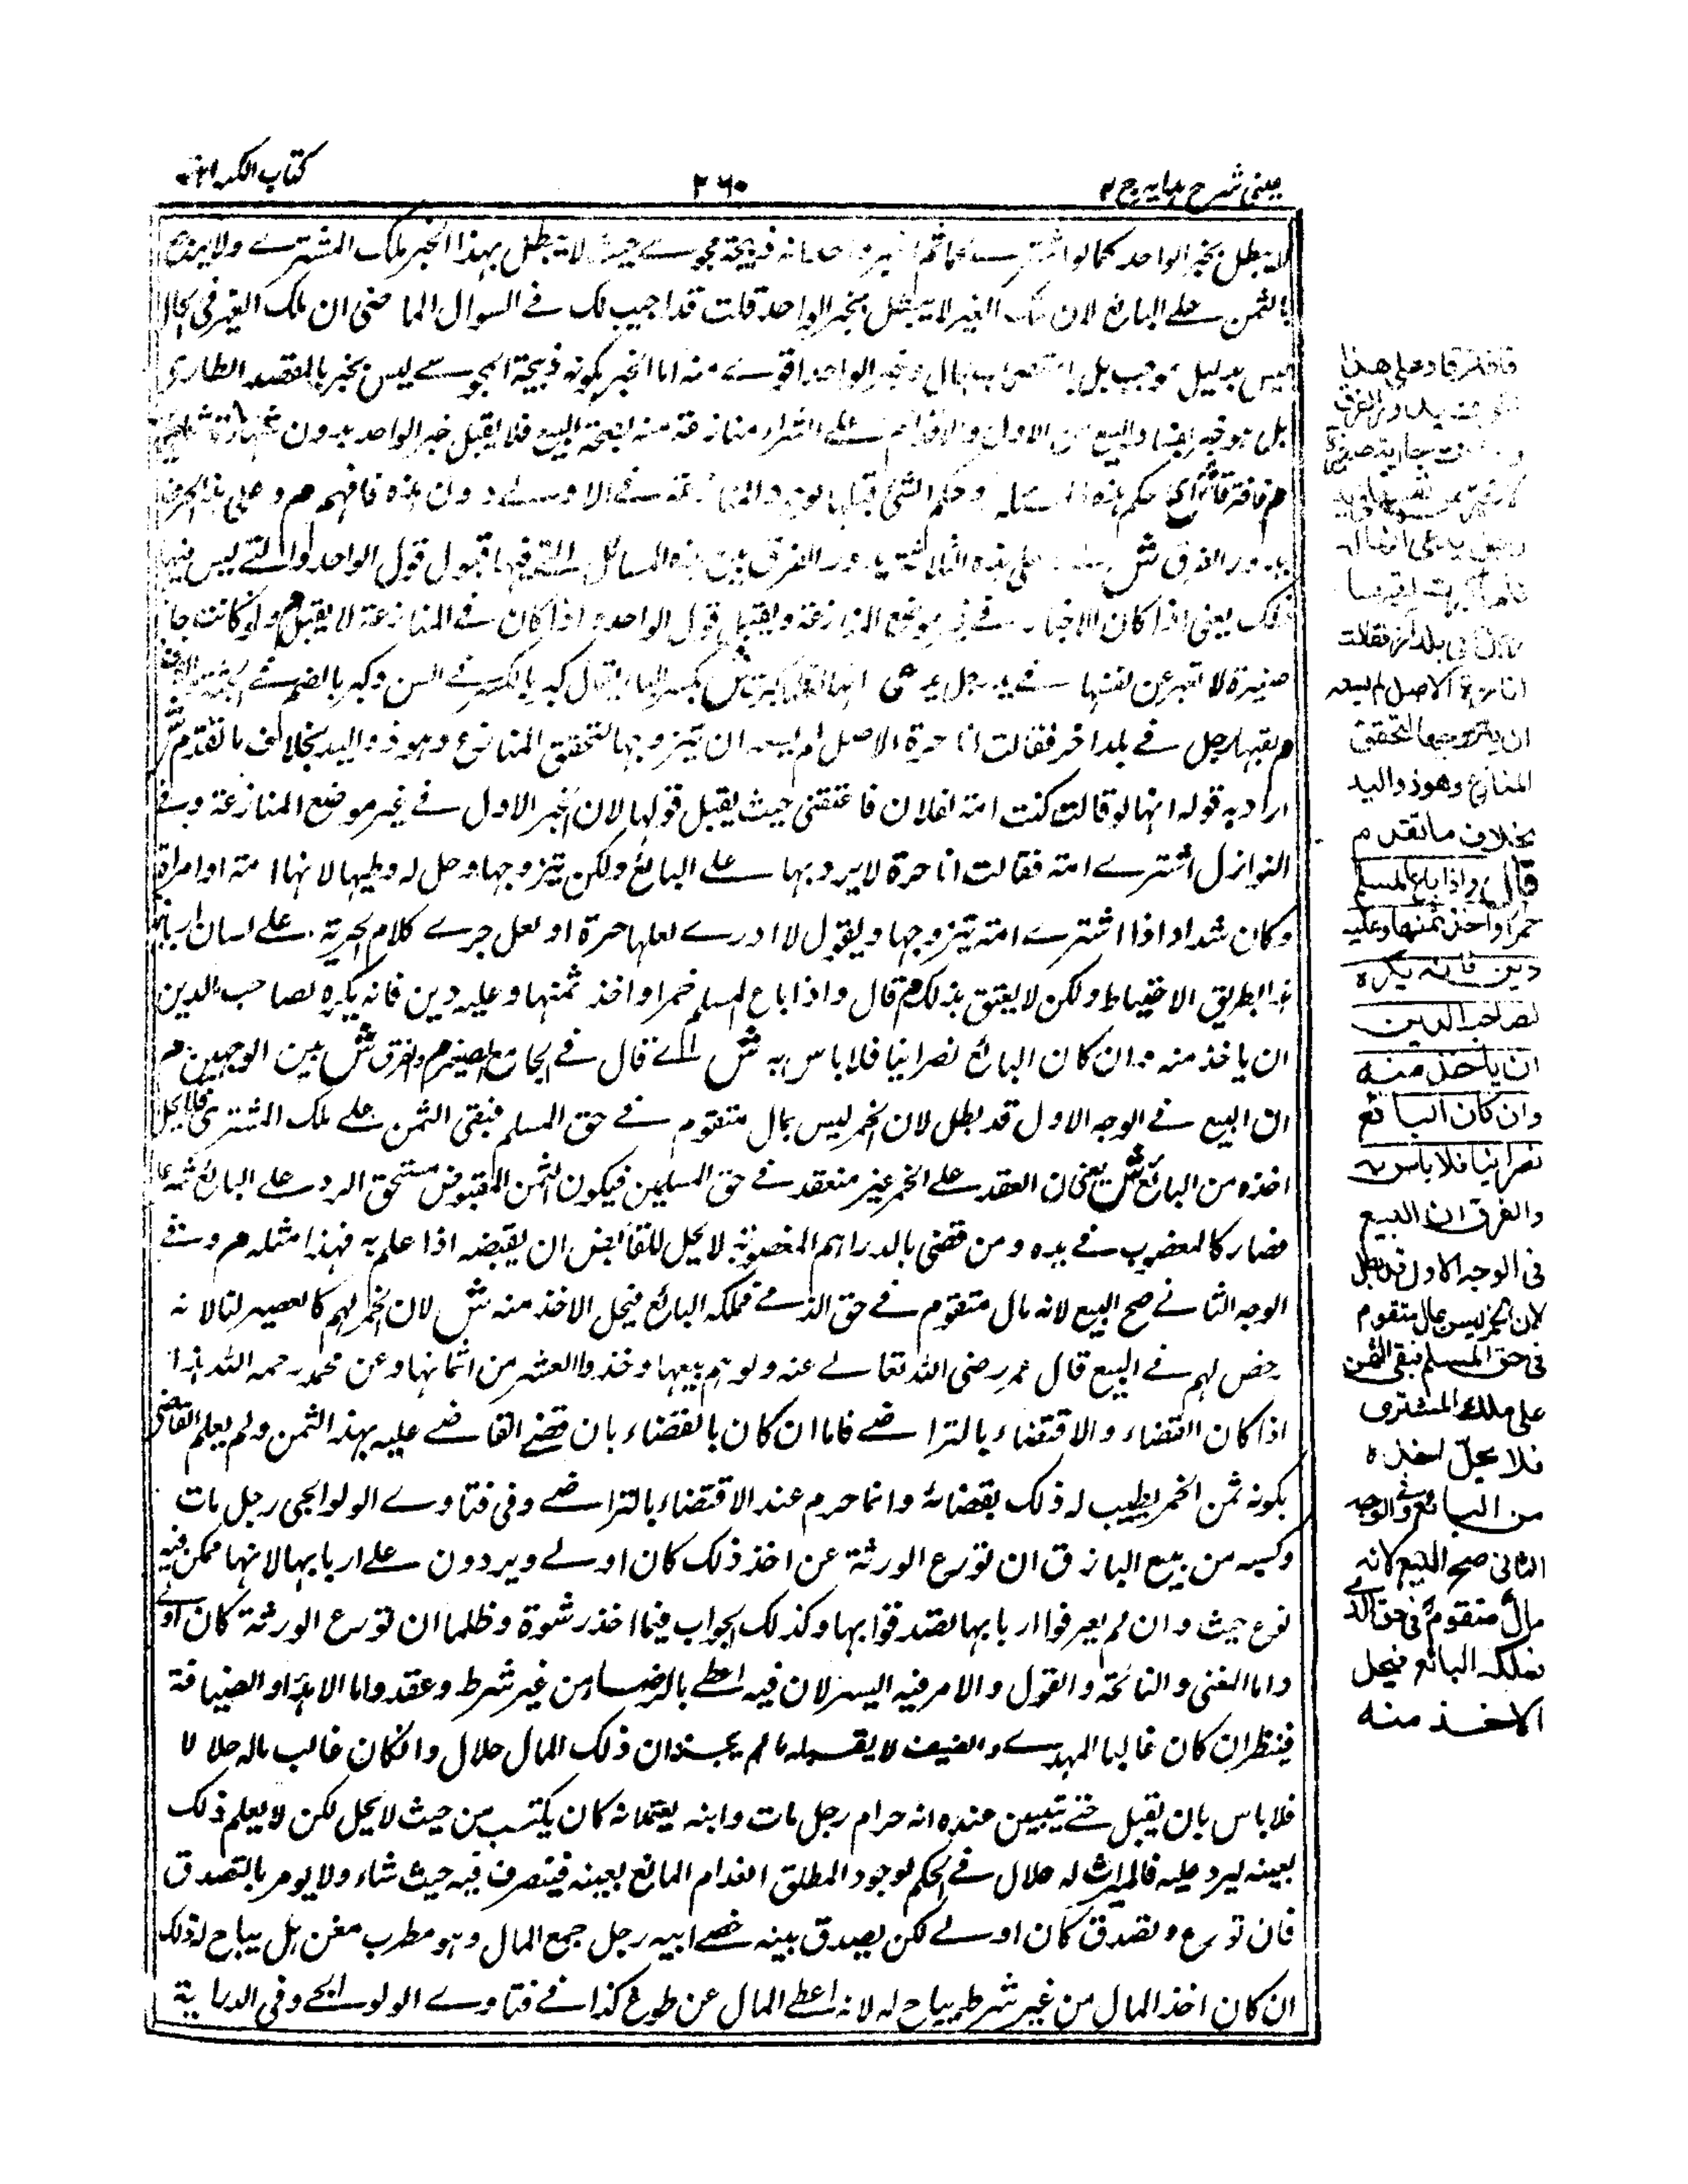 عینی شرح ہدایہ ج ۴
۲۶۰
کتاب الکراہیة
لا یبطل بخبر الواحد کما لو اشتری ثم واحد انہ ذبیحة مجوسے حیث لا یبطل بہذا الخبر ملک المشترے ولا یرجع
بالثمن علے البائع لان ملک الغیر لا یبطل بخبر الواحد قلت قد اجیب لک فے السوال الماضی ان ملک الغیر فی الحال
لیس بدلیل موجب بل باستصحاب الحال وخبر الواحد اقوے منہ اما الخبر بکونہ ذبیحة المجوسے لیس بخبر بالمفسد الطاری
بل ہو خبر بفساد البیع من الاول والاقدام علے الشراء منازعة منہ لصحة البیع فلا یقبل خبر الواحد بدون
م فافترقا ش ای حکم ہذہ المسئلہ وحکم التی قبلہا فے الاولے دون ہذہ فافہم م وعلی ہذا الحرف
یدور الفرق ش علی ہذہ یدور الفرق بین ہذہ المسائل التے فیہا قبول قول الواحد والتے لیس فیہا
ذلک یعنی اذا کان الاخبار فے غیر موضع المنازعة ویقبل قول الواحد و اذا کان فے المنازعة لا یقبل م ولو کانت جاریة
صغیرة لا تعبر عن نفسہا فے ید رجل یدعی انہا لہ فلما کبرت ش بکسر الباء یقال کبر بالکسر فے السن وکبر بالضم فے
م لقیہا رجل فے بلد اخر فقالت انا حرة الاصل لم یسعہ ان یتزوجہا لتحقق المنازع وہو ذو الید بخلاف ما تقدم ش
اراد بہ قولہ انہا لو قالت کنت امة لفلان فاعتقنی حیث یقبل قولہا لان الخبر الاول فے غیر موضع المنازعة وفے
النوازل اشترے امة فقالت انا حرة لا یرد بہا علے البائع ولکن یتزوجہا وحل لہ وطیہا لانہا امتہ او امراتہ
وکان شداد اذا اشترے امة یتزوجہا ویقول لا ادرے لعلہا حرة او لعل جرے کلام الحریة علے لسان اربابہا
ہذا لطریق الاحتیاط ولکن لا یعتق بذلک م قال واذا باع المسلم خمرا واخذ ثمنہا وعلیہ دین فانہ یکرہ لصاحب الدین
ان یاخذ منہ وان کان البائع نصرانیا فلا باس بہ ش اے قال فے الجامع الصغیر م والفرق ش بین الوجہین م
ان البیع فے الوجہ الاول قد بطل لان الخمر لیس بمال متقوم فے حق المسلم فبقی الثمن علے ملک المشتری فلا یحل
اخذہ من البائع ش یعنی ان العقد علے الخمر غیر منعقد فے حق المسلمین فیکون الثمن المقبوض مستحق الرد علے البائع
فصار کالمغصوب فے یدہ ومن قضی بالدراہم المغصوبة لا یحل للقابض ان یقبضہ اذا علم بہ فہذا مثلہ م وفے
الوجہ الثانے صح البیع لانہ مال متقوم فے حق الذمے فملکہ البائع فیحل الاخذ منہ ش لان الخمر لہم کالعصیر لنا لانہ
رخص لہم فے البیع قال عمر رضی اللہ تعالے عنہ ولوہم بیعہا وخذوا العشر من اثمانہا وعن محمد رحمہ اللہ ہذا
اذا کان القضاء والاقتضاء بالتراضے فاما ان کان بالقضاء بان قضے القاضے علیہ بہذا الثمن ولم یعلم القاضی
بکونہ ثمن الخمر یطیب لہ ذلک بقضائہ وانما حرم عند الاقتضاء بالتراضے وفی فتاوے الولوالجی رجل مات
وکسبہ من بیع الباذق ان تورع الورثة عن اخذ ذلک کان اولے ویردون علے اربابہا لانہا ممکن فیہ
نوع خبث وان لم یعرفوا اربابہا تصدقوا بہا وکذلک الجواب فیما اخذ رشوة وظلما ان تورع الورثة کان اولے
واما المغنی والنائحة والقول والامر فیہ الیسر لان فیہ اعطے بالرضا من غیر شرط وعقد واما الہدیة او الضیافة
فینظر ان کان غالب المہدے والضیف لا یقبلہ ما لم یخبر ان ذلک المال حلال وان کان غالب مالہ حلالا
فلا باس بان یقبل حتے یتبین عندہ انہ حرام رجل مات وابنہ یعلم انہ کان یکتسب من حیث لا یحل لکن لا یعلم ذلک
بعینہ لیرد علیہ فالمیراث لہ حلال فے الحکم لوجود المطلق انعدام المانع بعینہ فیتصرف فیہ حیث شاء ولا یومر بالتصدق
فان تورع وتصدق کان اولے لکن یصدق بنیة خصے ابیہ رجل جمع المال وہو مطرب مغن ہل یباح لہ ذلک
ان کان اخذ المال من غیر شرط یباح لہ لانہ اعطے المال عن طوع کذا فے فتاوے الولوالجے وفی الدرایة
فافترقا وعلی هذا
یدور الفرق
جاریة صغیرة
لا تعبر عن نفسها فی ید
رجل یدعی انها له
فلما کبرت لقیها
رجل فی بلد اخر فقالت
انا حرة الاصل لم یسعه
ان یتزوجها لتحقق
المنازع وهو ذو الید
بخلاف ما تقدم
قال واذا باع المسلم
خمرا واخذ ثمنها وعلیه
دین فانه یکره
لصاحب الدین
ان یاخذ منه
وان کان البائع
نصرانیا فلا باس به
والفرق ان البیع
فی الوجه الاول قد بطل
لان الخمر لیس بمال متقوم
فی حق المسلم فبقی الثمن
علی ملك المشتری
فلا یحل اخذه
من البائع وفے الوجه
الثانی صح البیع لانه
مال متقوم فی حق الذمے
فملکه البائع فیحل
الاخذ منه